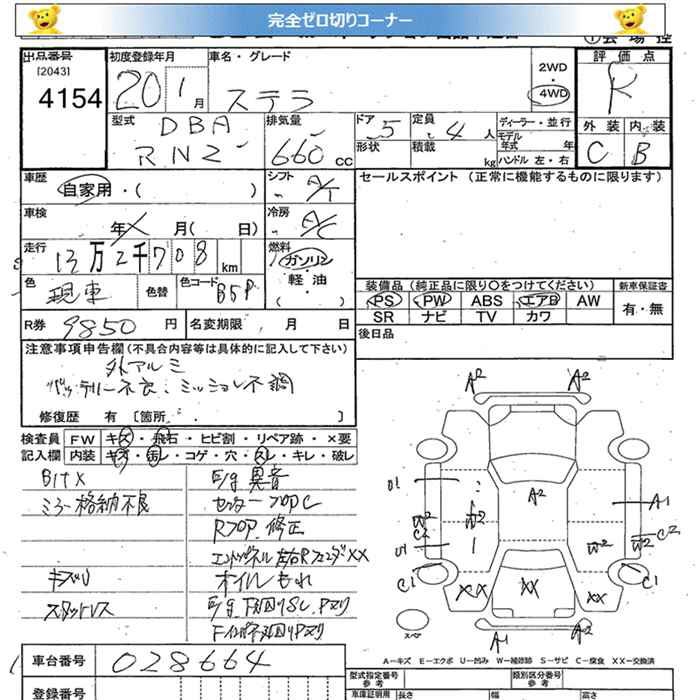 完全ゼロ切りコーナー
出品番号
[2043]
4154
初度登録年月
20 1月
車名・グレード
ステラ
2WD
・
4WD
評価点
R
外装 内装
C B
型式
DBA
RN2
排気量
660 cc
ドア 5
形状
定員 4 人
積載 kg
ディーラー・並行
モデル年式 年
ハンドル 左・右
車歴
自家用・( )
シフト
A/T
セールスポイント (正常に機能するものに限ります)
車検
年 月( 日)
冷房
A/C
走行
13万2千708km
燃料
ガソリン
軽・油
( )
色
現車
色替
色コード B5P
装備品 (純正品に限り〇をつけてください)
新車保証書
PS PW ABS エアB AW
有・無
SR ナビ TV カワ
R券 9850 円
名変期限 月 日
後日品
注意事項申告欄 (不具合内容等は具体的に記入して下さい)
外アルミ
バッテリー不良、ミッション不調
修復歴 有 [箇所 . ]
検査員 FW キズ・飛石・ヒビ割・リペア跡・×要
記入欄 内装 キズ・汚レ・コゲ・穴・スレ・キレ・破レ
Bltx
ミラー格納不良
キズU
スタットレス
E/g 異音
センターフロアC
Rフロア修正
エンドパネル左右RフェンダXX
オイルもれ
E/g下廻りSC、Pヌリ
Fインパネ廻りPヌリ
A2 A2
U1
A2
A1
W2
C2
W2
W2
W2
C2
U1
C1
C1
XX
XX
XX
スペア
A1
A2
A-キズ E-エクボ U-凹み W-補修跡 S-サビ C-腐食 XX-交換済
車台番号 028664
登録番号
型式指定番号
参考
類別区分番号
参考
車庫証明用
長さ
幅
高さ